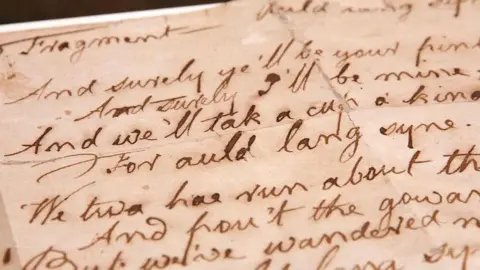 Auld lang syn
Fragment
And surely ye'll be your pin
And surely I'll be mine
And we'll tak a cup o kind
For auld lang syne.
We twa hae run about th
And pou't the gowa
But we've wandered m
lang sy